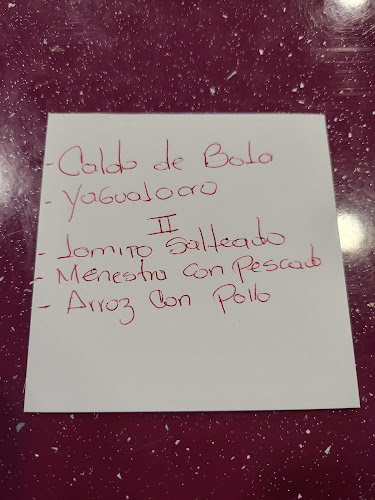 - Caldo de Bola
- Yagualocro
II
- Lomito Salteado
- Menestra con Pescado
- Arroz Con Pollo